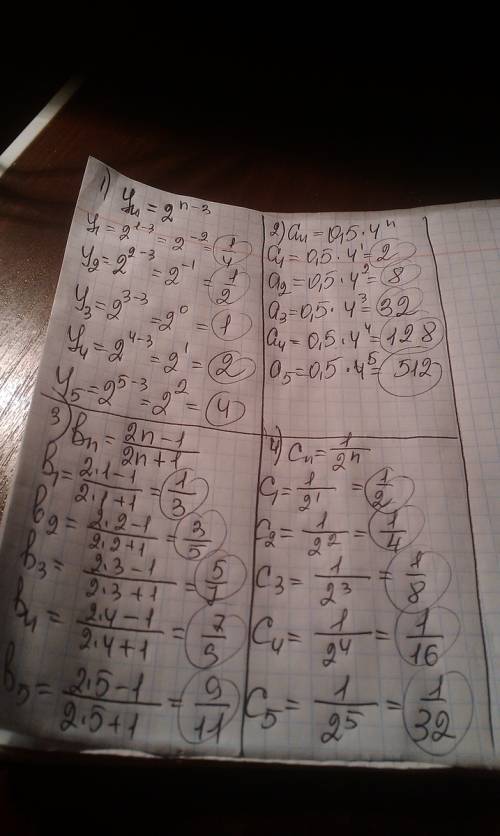 1) yₙ = 2ⁿ⁻³
y₁ = 2¹⁻³ = 2⁻² = 1/4
y₂ = 2²⁻³ = 2⁻¹ = 1/2
y₃ = 2³⁻³ = 2⁰ = 1
y₄ = 2⁴⁻³ = 2¹ = 2
y₅ = 2⁵⁻³ = 2² = 4
2) aₙ = 0,5·4ⁿ
a₁ = 0,5·4¹ = 2
a₂ = 0,5·4² = 8
a₃ = 0,5·4³ = 32
a₄ = 0,5·4⁴ = 128
a₅ = 0,5·4⁵ = 512
3) bₙ = (2n-1)/(2n+1)
b₁ = (2·1-1)/(2·1+1) = 1/3
b₂ = (2·2-1)/(2·2+1) = 3/5
b₃ = (2·3-1)/(2·3+1) = 5/7
b₄ = (2·4-1)/(2·4+1) = 7/9
b₅ = (2·5-1)/(2·5+1) = 9/11
4) cₙ = 1/2ⁿ
c₁ = 1/2¹ = 1/2
c₂ = 1/2² = 1/4
c₃ = 1/2³ = 1/8
c₄ = 1/2⁴ = 1/16
c₅ = 1/2⁵ = 1/32